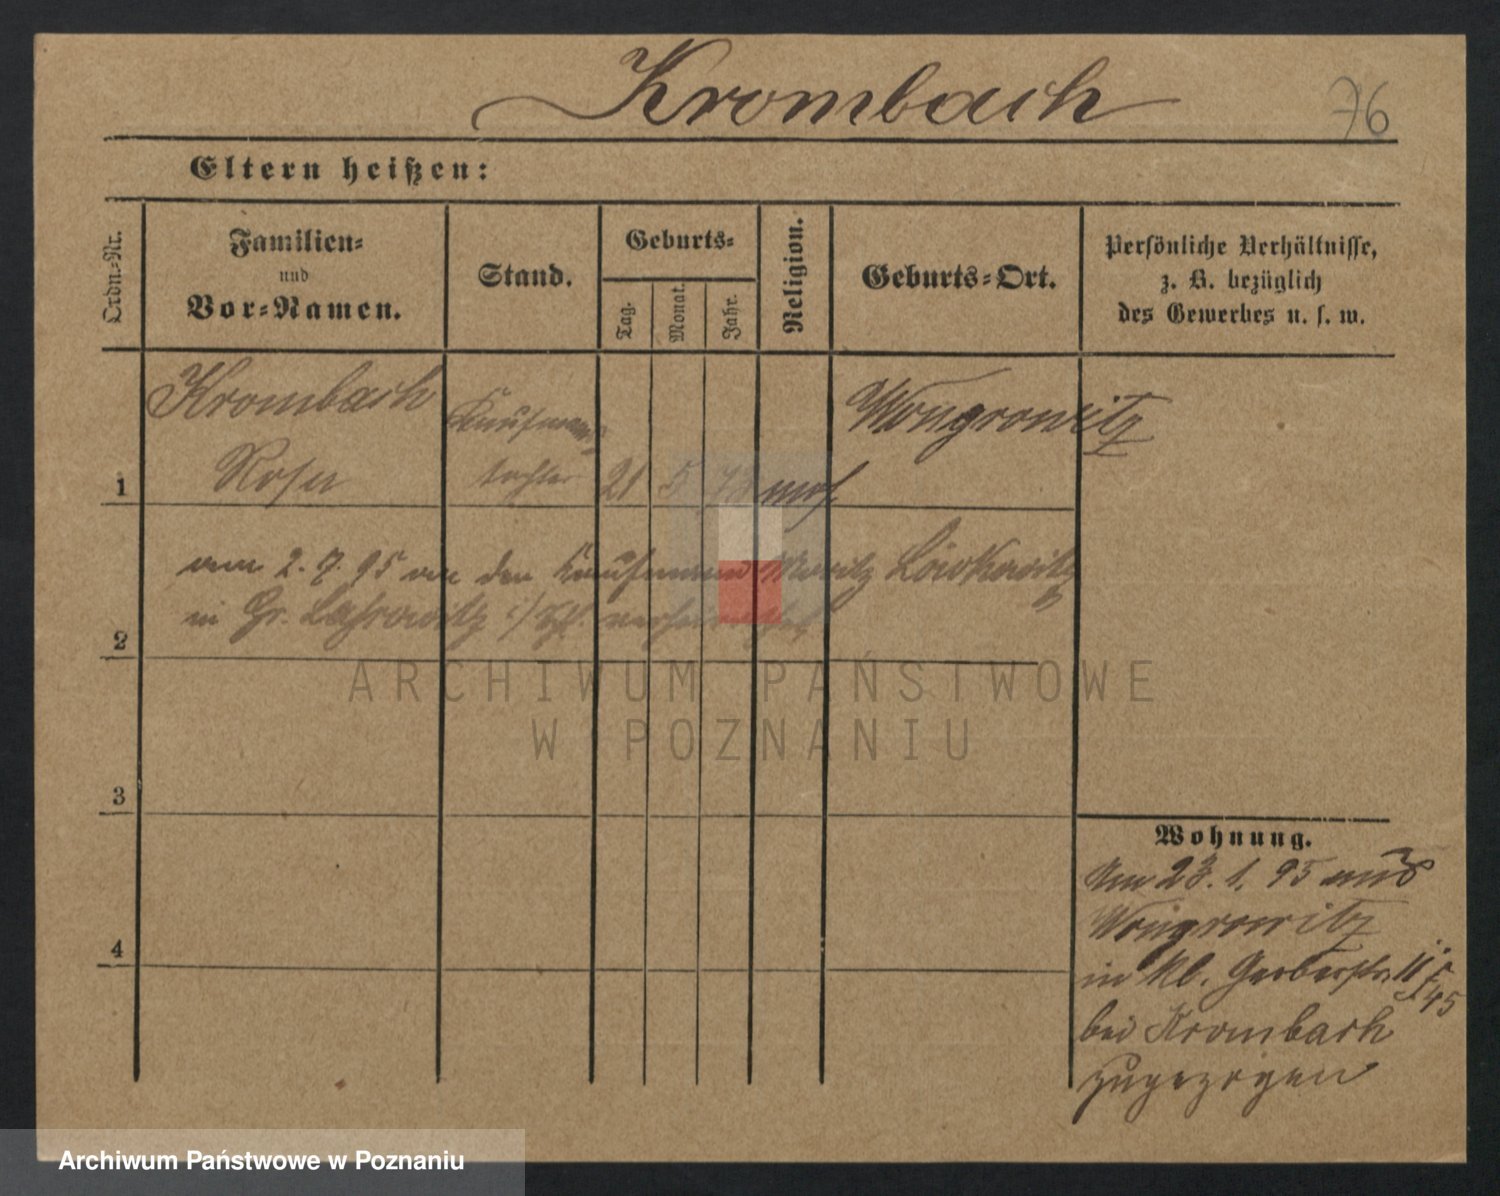 Krombach
76
Eltern heißen:
Ordn.-Nr.
Familien-
und
Vor-Namen.
Stand.
Geburts-
Tag.
Monat.
Jahr.
Religion.
Geburts-Ort.
Persönliche Verhältnisse,
z. B. bezüglich
des Gewerbes u. s. w.
Krombach
Rosa
Kaufmanns
tochter
21 5 73 mos.
Wongrowitz
1
am 2. 7. 95 an den Kaufmann Moritz
in Gr. verheirathet
2
ARCHIWUM PAŃSTWOWE
W POZNANIU
3
4
Wohnung.
Am 23. 1. 95 aus
Wongrowitz
in kl. Gerberstr. 11
bei Krombach
zugezogen
Archiwum Państwowe w Poznaniu